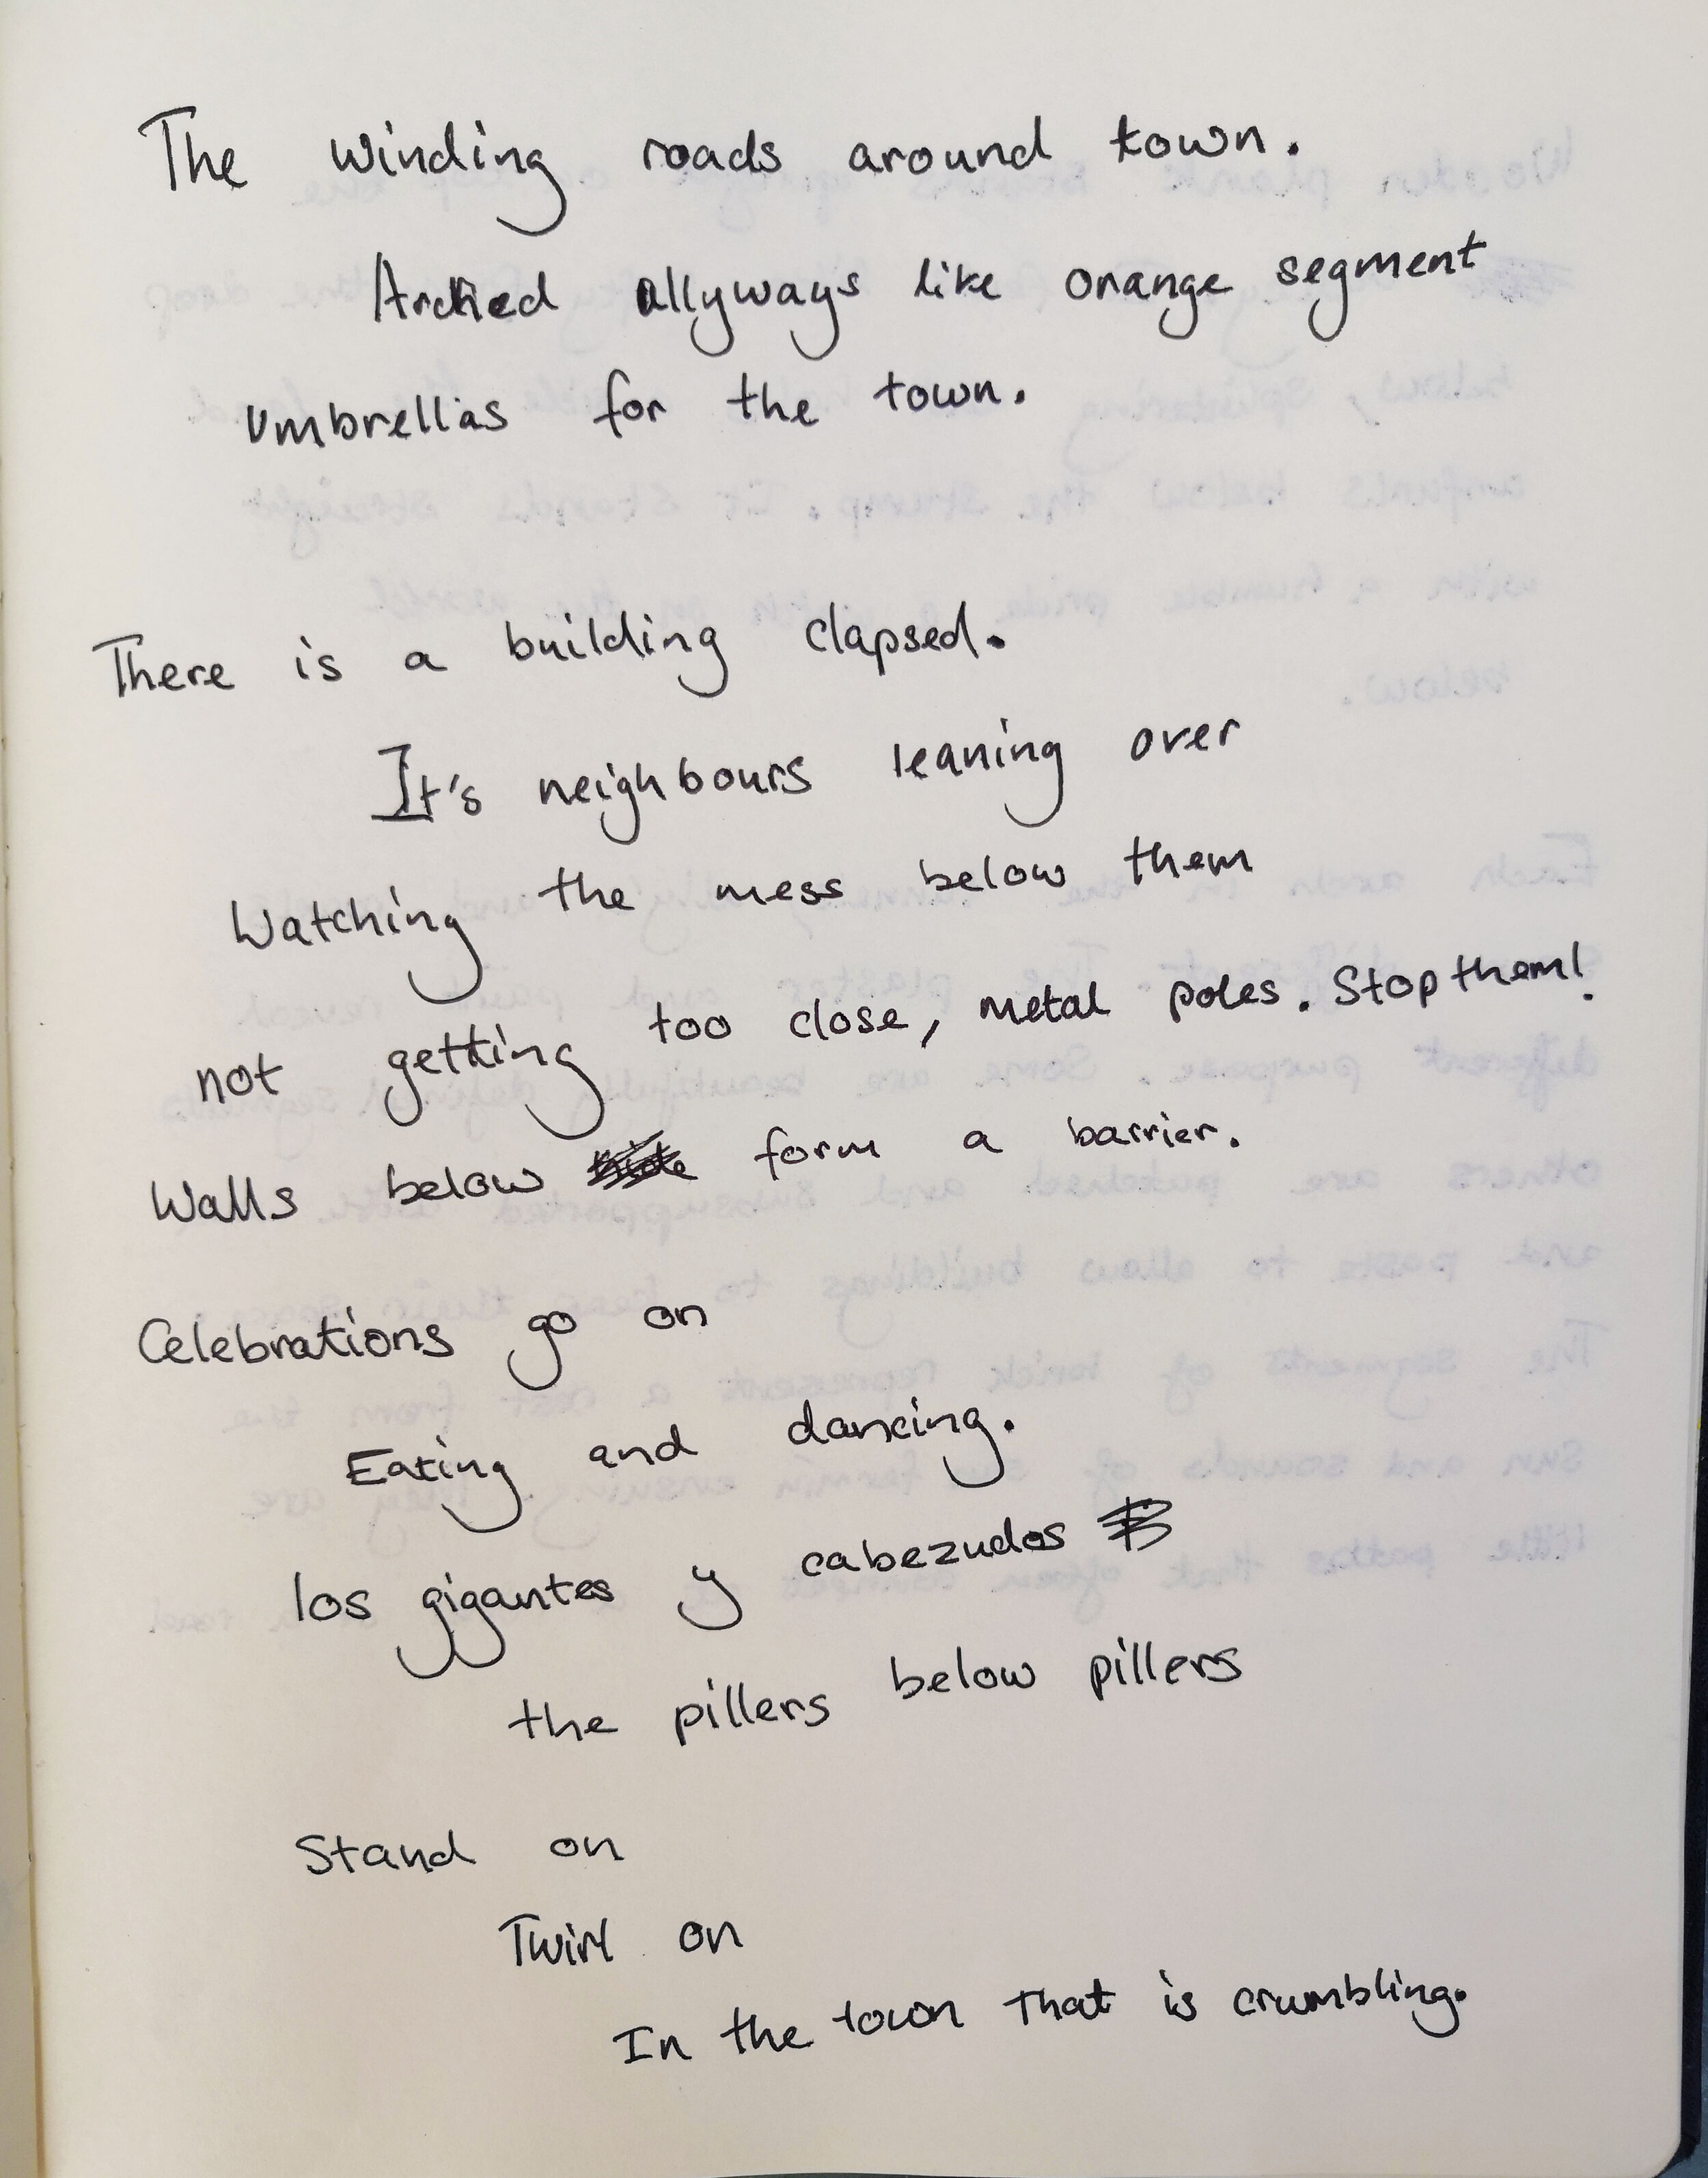 The winding roads around town.
Arched allyways like orange segment
umbrellas for the town.
There is a building clapsed.
It's neighbours leaning over
Watching the mess below them
not getting too close, metal poles. Stop them!
Walls below form a barrier.
Celebrations go on
Eating and dancing.
los gigantes y cabezudos
the pillers below pillers
Stand on
Twirl on
In the town that is crumbling.